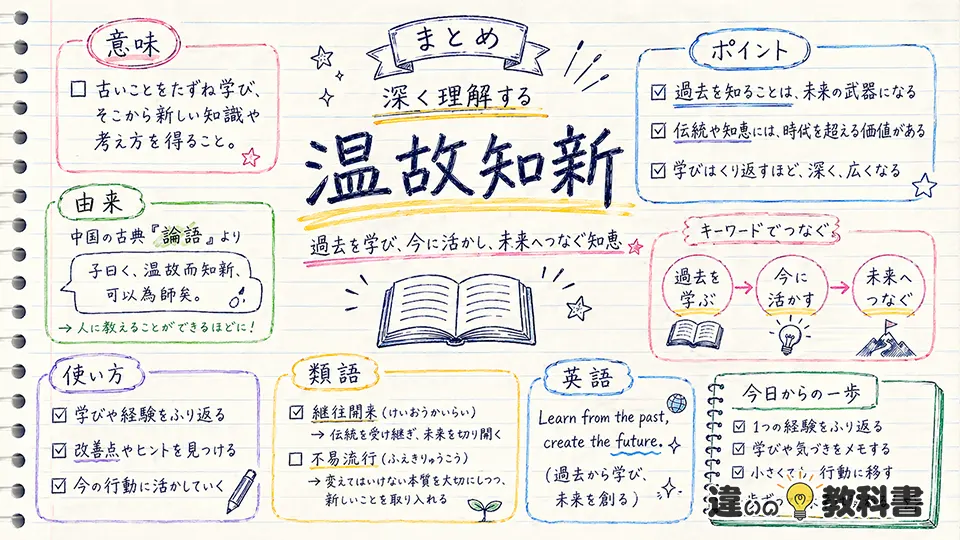 まとめ
深く理解する
温故知新
過去を学び、今に活かし、未来へつなぐ知恵
意味
古いことをたずね学び、
そこから新しい知識や
考え方を得ること。
由来
中国の古典『論語』より
子曰く、温故而知新、
可以為師矣。
→ 人に教えることができるほどに!
ポイント
過去を知ることは、未来の武器になる
伝統や知恵には、時代を超える価値がある
学びはくり返すほど、深く、広くなる
キーワードでつなぐ
過去を
学ぶ
→
今に
活かす
→
未来へ
つなぐ
使い方
学びや経験をふり返る
改善点やヒントを見つける
今の行動に活かしていく
類語
継往開来(けいおうかいらい)
→ 伝統を受け継ぎ、未来を切り開く
不易流行(ふえきりゅうこう)
→ 変えてはいけない本質を大切にしつつ、
新しいことを取り入れる
英語
Learn from the past,
create the future.
(過去から学び、
未来を創る)
今日からの一歩
1つの経験をふり返る
学びや気づきをメモする
小さく 行動に移す
違いの教科書